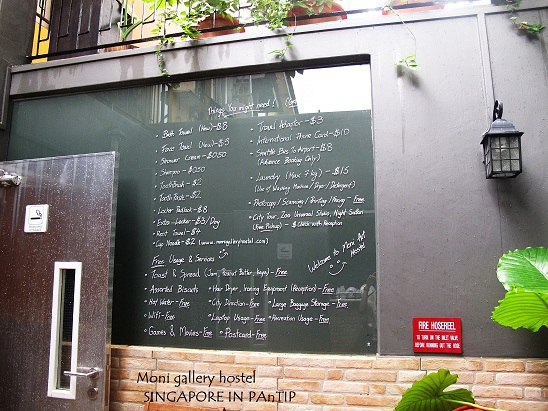 Moni gallery hostel
SINGAPORE IN PAnTIP
Things You might need !
• Bath Towel (New)-$8
• Face Towel (New)-$3
• Shower Cream - $0.50
• Shampoo - $0.50
• Toothbrush - $2
• Tooth Paste - $2
• Locker Padlock - $8
• Extra Locker - $3/Day
• Rent Towel - $4
• Cup Noodle - $2 (www.monigalleryhostel.com)
• Travel Adaptor - $3
• International Phone Card - $10
• Shuttle Bus To Airport - $8
(Advance Booking Only)
• Laundry (Max 7 kg) - $15
(Use of Washing Machine / Dryer / Detergent)
• Photocopy / Scanning / Printing / Faxing - Free
• City Tour, Zoo, Universal Studio, Night Safari
(Free Pickup) - $ Check with Reception
Welcome to Moni Art
Hostel
Free Usage & Services
• Toast & Spread (Jam, Peanut Butter, Kaya) - Free
• Assorted Biscuits
• Hair Dryer, Ironing Equipment (Reception) - Free
• Hot Water - Free
• City Direction - Free
• Large Baggage Storage - Free
• Wifi - Free
• Laptop Usage - Free
• Recreation Usage - Free
• Games & Movies - Free
• Postcard - Free
FIRE HOSEREEL
TO TURN ON THE INLET VALVE
BEFORE RUNNING OUT THE HOSE
Moni gallery hostel
SINGAPORE IN PAnTIP